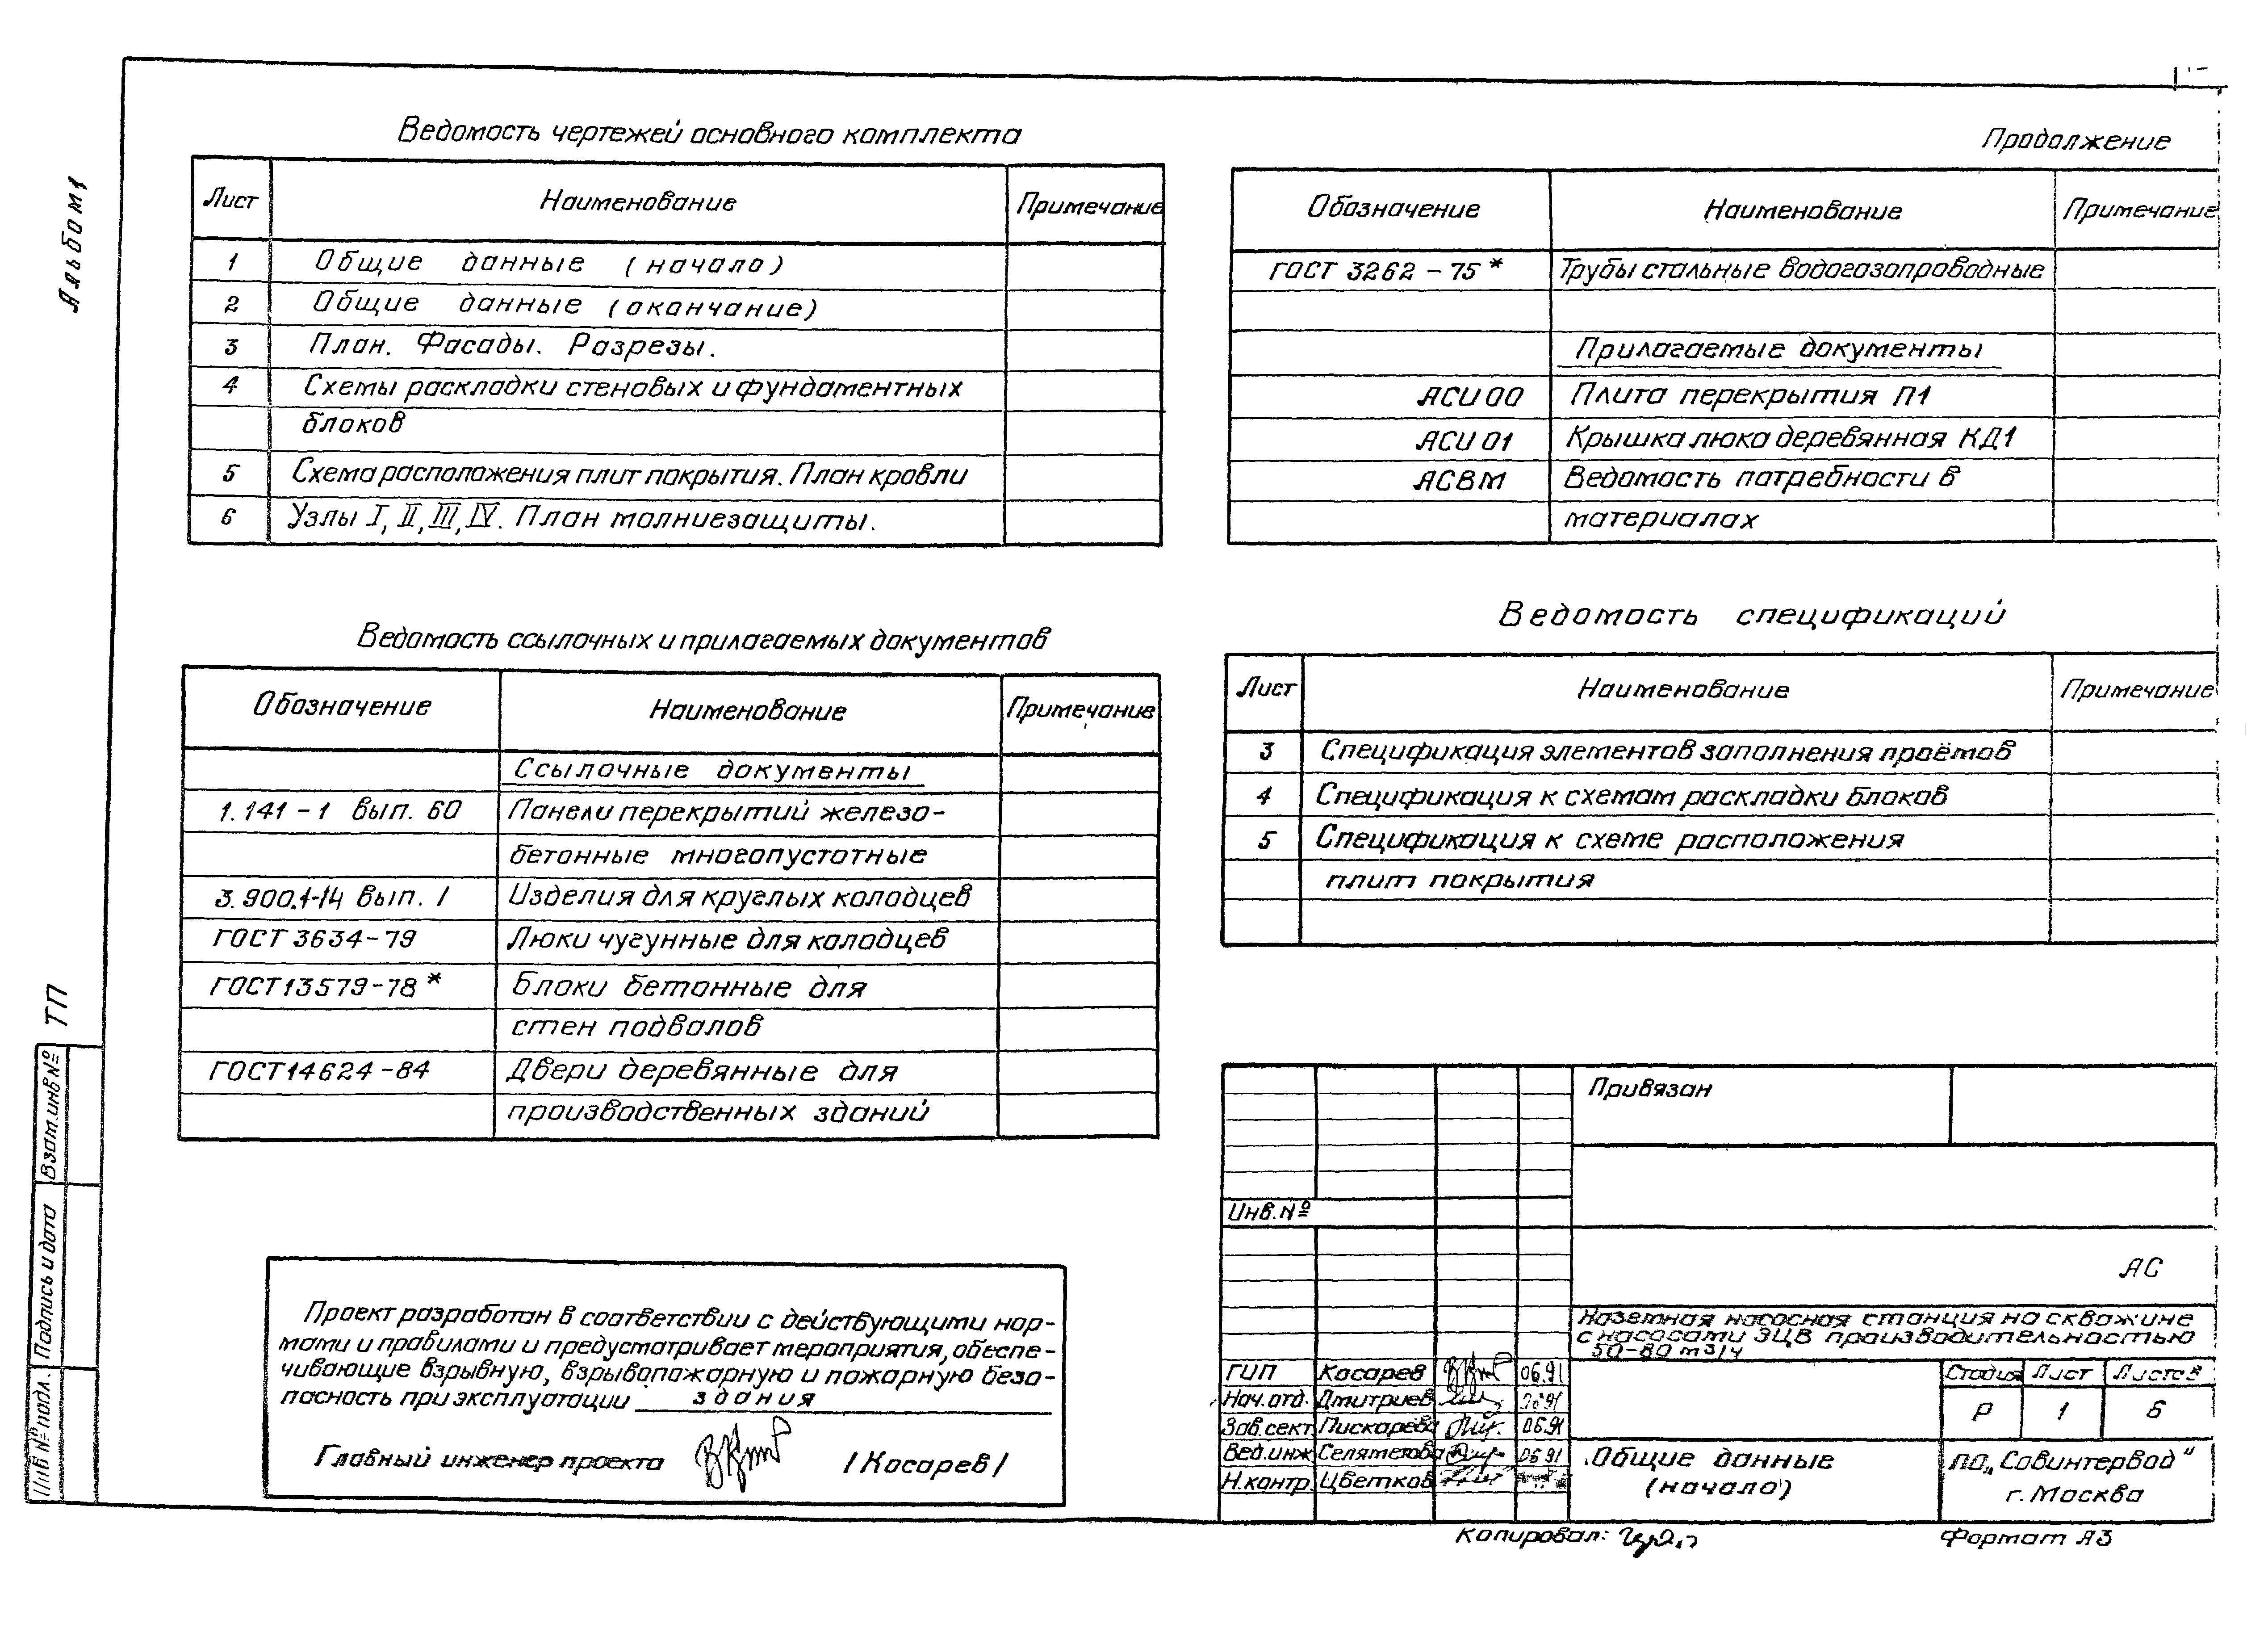 Альбом 1
Ведомость чертежей основного комплекта
Лист Наименование Примечание
1 Общие данные (начало)
2 Общие данные (окончание)
3 План. Фасады. Разрезы.
4 Схемы раскладки стеновых и фундаментных
блоков
5 Схема расположения плит покрытия. План кровли
6 Узлы I, II, III, IV. План молниезащиты.
Ведомость ссылочных и прилагаемых документов
Обозначение Наименование Примечание
Ссылочные документы
1.141-1 вып. 60 Панели перекрытий железо-
бетонные многопустотные
3.900.1-14 вып. 1 Изделия для круглых колодцев
ГОСТ 3634-79 Люки чугунные для колодцев
ГОСТ 13579-78* Блоки бетонные для
стен подвалов
ГОСТ 14624-84 Двери деревянные для
производственных зданий
Проект разработан в соответствии с действующими нор-
мами и правилами и предусматривает мероприятия, обеспе-
чивающие взрывную, взрывопожарную и пожарную безо-
пасность при эксплуатации здания
Главный инженер проекта /Косарев/
Продолжение
Обозначение Наименование Примечание
ГОСТ 3262-75* Трубы стальные водогазопроводные
Прилагаемые документы
АСИ 00 Плита перекрытия П1
АСИ 01 Крышка люка деревянная КД1
АСВМ Ведомость потребности в
материалах
Ведомость спецификаций
Лист Наименование Примечание
3 Спецификация элементов заполнения проёмов
4 Спецификация к схемам раскладки блоков
5 Спецификация к схеме расположения
плит покрытия
Привязан
Инв. №
АС
Наземная насосная станция на скважине
с насосами ЭЦВ производительностью
50-80 м3/ч
ГИП Косарев 06.91
Нач. отд. Дмитриев 06.91
Зав. сект. Пискарева 06.91
Вед. инж. Селяметова 06.91
Н. контр. Цветков
Стадия Лист Листов
Р 1 6
Общие данные
(начало)
ПО „Совинтервод"
г. Москва
Копировал:
Формат А3
ТП
Взам. инв №
Подпись и дата
Инв № подл.